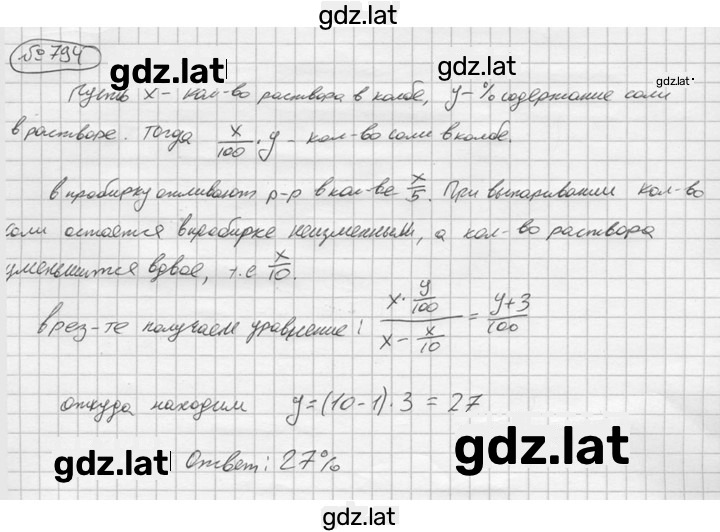 gdz.lat
№ 794
gdz.lat
gdz.lat
Пусть x - кол-во раствора в колбе, y - % содержание соли
в растворе. Тогда x/100 · y - кол-во соли в колбе.
В пробирку отливают р-р в кол-ве x/5. При выпаривании кол-во
соли остается в пробирке неизменным, а кол-во раствора
уменьшится вдвое, т.е x/10.
В рез-те получаем уравнение: (x · y/100)/(x - x/10) = (y+3)/100
откуда находим y=(10-1)·3 = 27
gdz.lat
Ответ: 27%
gdz.lat
gdz.lat